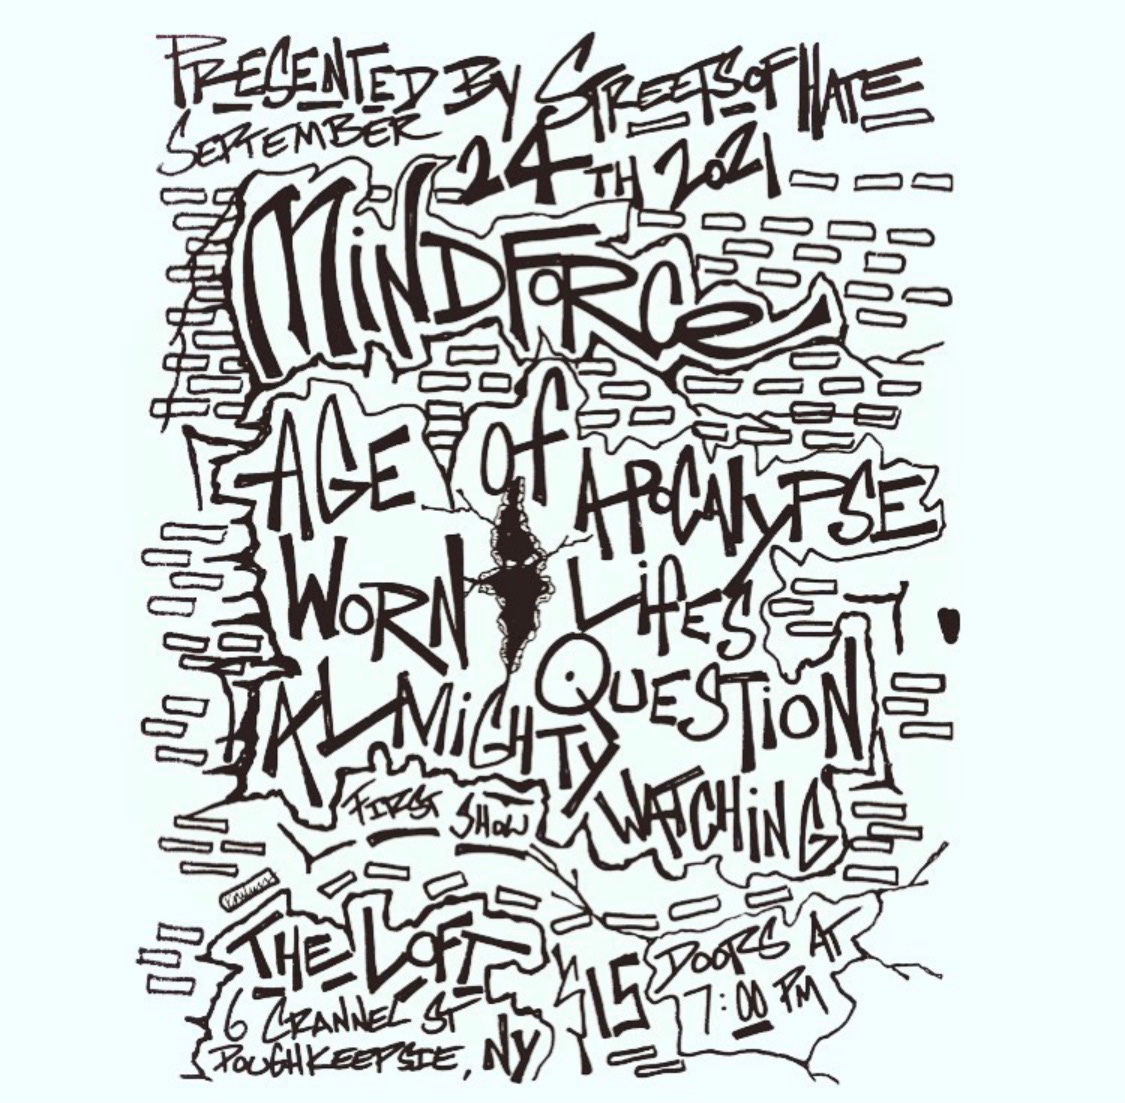 PRESENTED BY STREETS OF HATE
SEPTEMBER 24TH 2021
MiNDFORCe
AGE Of APOCALYPSE
WORN LifES
ALMiGHTY QUESTiON
FIRST SHOW WATCHiNG
THE LOFT $15 DOORS AT
6 CRANNEL ST 7:00 PM
POUGHKEEPSIE, NY